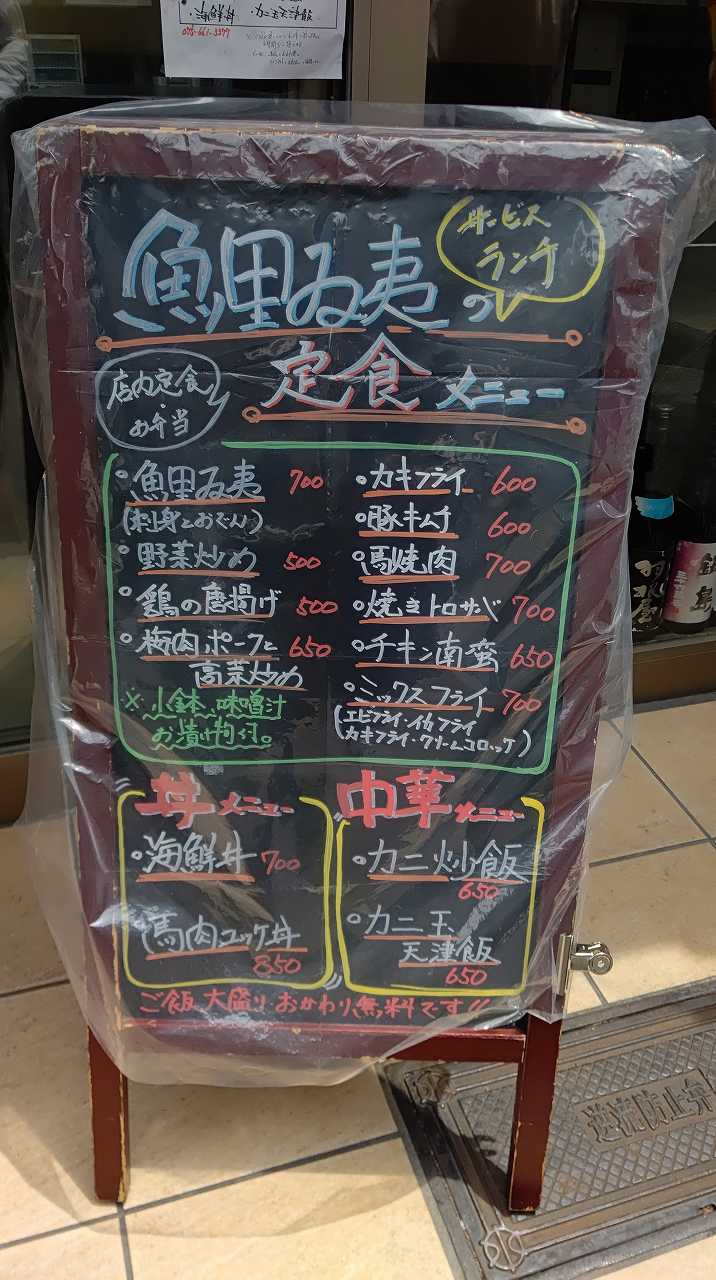 海鮮丼 ・カニ玉天津飯
サービス
ランチ
魚里ゐ夷の
定食メニュー
店内定食
・
お弁当
・魚里ゐ夷 700
(刺身とおでん)
・野菜炒め 500
・鶏の唐揚げ 500
・梅肉ポークと 650
高菜炒め
※小鉢、味噌汁
お漬け物付。
・カキフライ 600
・豚キムチ 600
・馬焼肉 700
・焼きトロサバ 700
・チキン南蛮 650
・ミックスフライ 700
(エビフライ・イカフライ
カキフライ・クリームコロッケ)
丼メニュー
・海鮮丼 700
馬肉ユッケ丼
850
中華メニュー
・カニ炒飯
650
・カニ玉
天津飯
650
ご飯大盛り・おかわり無料です!!
鍋島
逆流防止弁